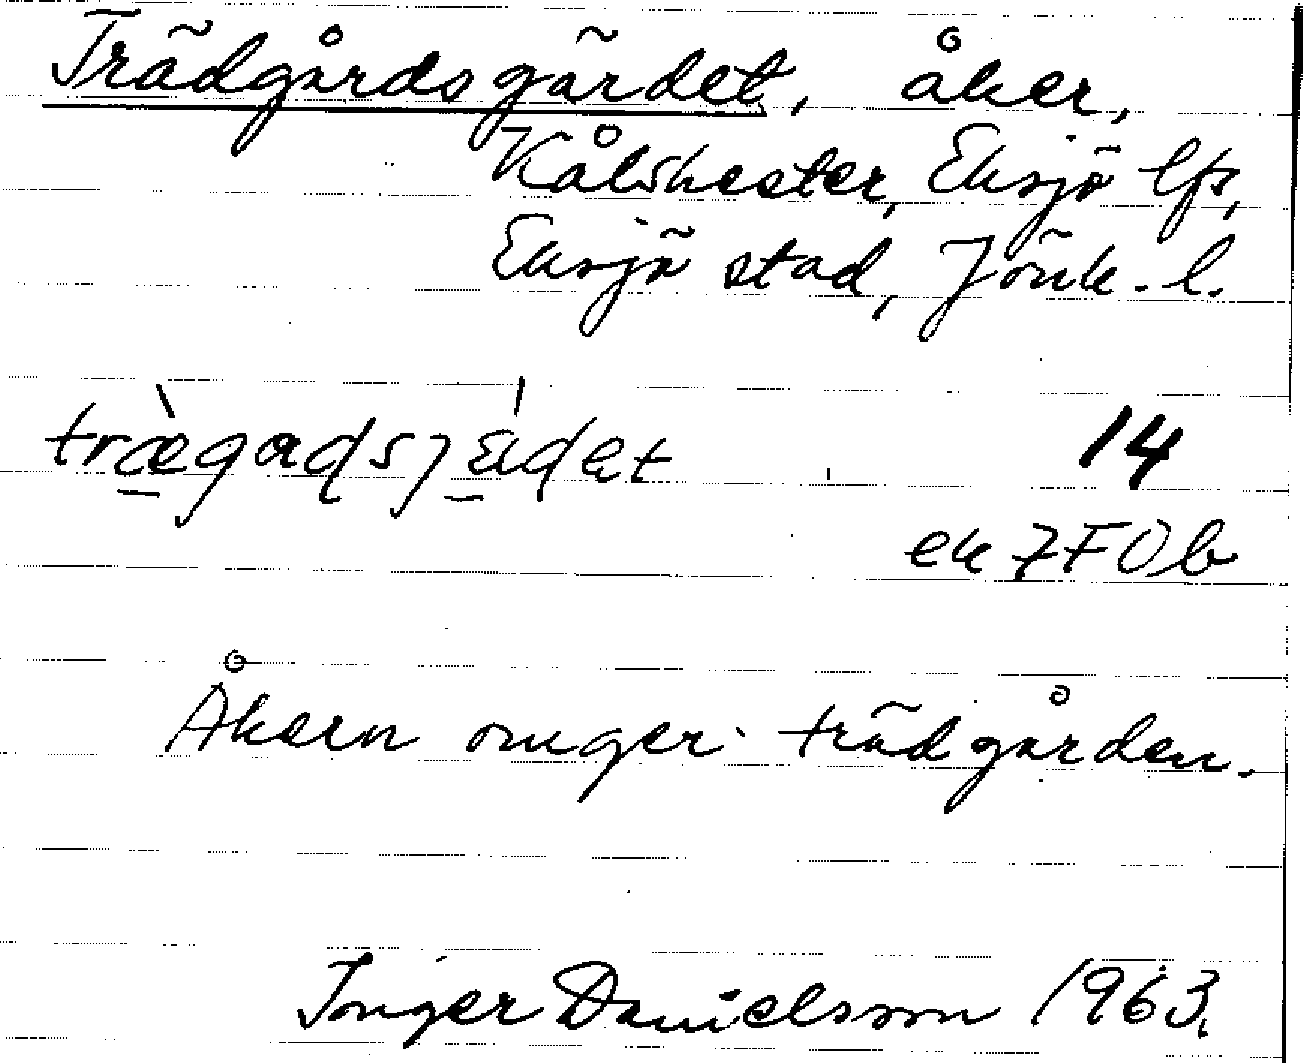 Trädgårdsgärdet, åker,
Kålshester, Eksjö lfs,
Eksjö stad, Jönk. l.
trægadsjædet 14
ek 7F0b
Åkern omger trädgården.
Inger Danielsson 1963.